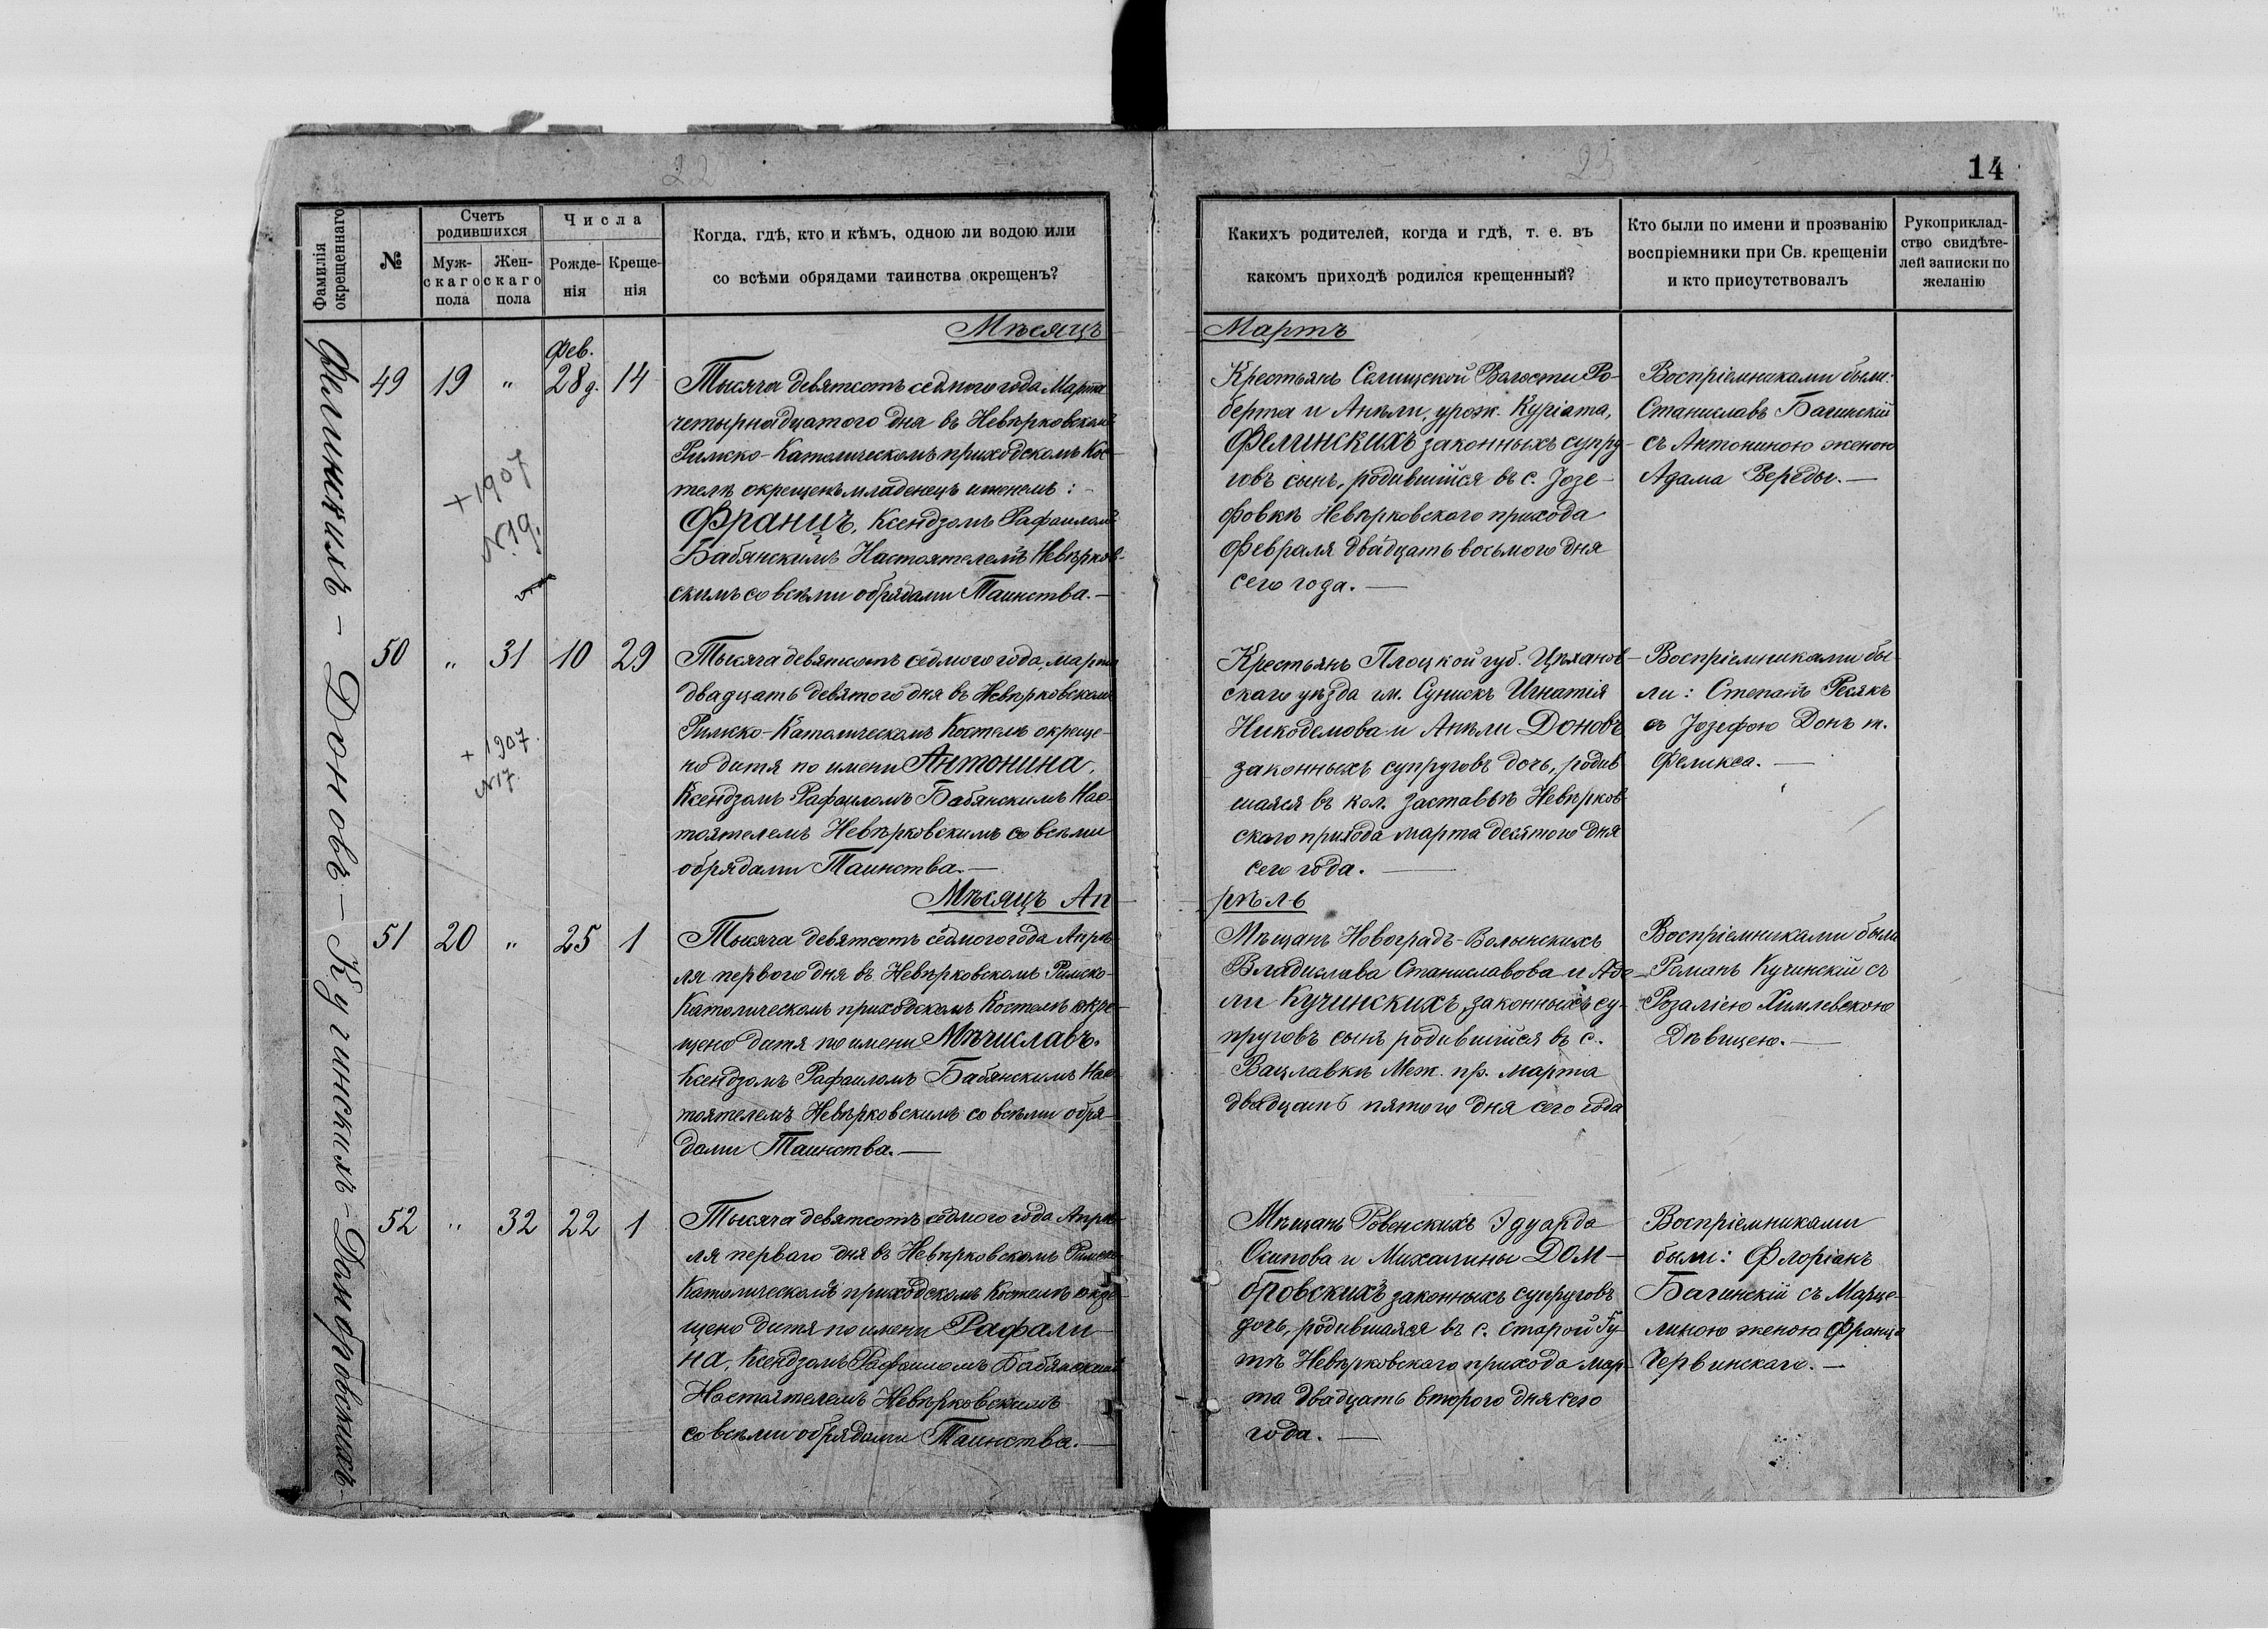 22
23
14
Фамилія
окрещеннаго
№
Счетъ
родившихся
Муж-
скаго
пола
Жен-
скаго
пола
Числа
Рожде-
нія
Креще-
нія
Когда, гдѣ, кто и кѣмъ, одною ли водою или
со всѣми обрядами таинства окрещенъ?
Какихъ родителей, когда и гдѣ, т. е. въ
какомъ приходѣ родился крещенный?
Кто были по имени и прозванію
воспріемники при Св. крещеніи
и кто присутствовалъ
Рукоприклад-
ство свидѣте-
лей записки по
желанію
Фелинскихъ – Доновъ – Кучинскихъ – Домбровскихъ
Мѣсяцъ
Мартъ
фев.
49 19 " 28 д. 14
+ 1907
N. 19.
Тысяча девятсотъ седмого года Марта
четырнадцатого дня въ Невѣрковскомъ
Римско-Католическомъ приходскомъ Кос-
телѣ окрещенъ младенецъ именемъ: -
Францъ, Ксендзомъ Рафаиломъ
Бабянскимъ Настоятелемъ Невѣрков-
скимъ со всѣми обрядами Таинства. —
Крестьянъ Селищской Волости Ро-
берта и Анѣли, урож. Куріата,
Фелинскихъ законныхъ супру-
говъ сынъ, родившійся въ с. Јозе-
фовкѣ Невѣрковского прихода
февраля двадцать восьмого дня
сего года. —
Воспріемниками были:
Станиславъ Багинскій
съ Антониною женою
Адама Вереды. —
50 " 31 10 29
+ 1907.
N 17.
Тысяча девятсотъ седмого года, марта
двадцать девятого дня въ Невѣрковскомъ
Римско-Католическомъ Костелѣ окреще-
но дитя по имени Антонина,
Ксендзомъ Рафаиломъ Бабянскимъ Нас-
тоятелемъ Невѣрковскимъ со всѣми
обрядами Таинства. —
Крестьянъ Плоцкой губ. Цѣханов-
скаго уѣзда гм. Сунискъ Игнатія
Никодемова и Анѣли Доновъ
законныхъ супруговъ дочь, родив
шаяся въ кол. Заставьѣ Невѣрков-
ского прихода марта десятого дня
сего года. —
Воспріемниками бы-
ли: Степанъ Ресякъ
съ Јозефою Донъ ж.
Феликса. —
Мѣсяцъ Ап
рѣль
51 20 " 25 1
Тысяча девятсотъ седмого года Апрѣ-
ля первого дня въ Невѣрковскомъ Римско-
Католическомъ приходскомъ Костелѣ окре-
щено дитя по имени Мѣчиславъ.
Ксендзомъ Рафаиломъ Бабянскимъ Нас-
тоятелемъ Невѣрковскимъ со всѣми обря-
дами Таинства. —
Мѣщанъ Новоградъ-Волынскихъ
Владислава Станиславова и Аде-
ли Кучинскихъ, законныхъ су-
пруговъ сынъ родившійся въ с.
Вацлавкѣ Меж. пр. марта
двадцать пятого дня сего года
Воспріемниками были
Романъ Кучинскій съ
Розаліею Химлевскою
Дѣвицею. —
52 " 32 22 1
Тысяча девятсотъ седмого года Апрѣ-
ля перваго дня въ Невѣрковскомъ Римско-
Католическомъ приходскомъ Костелѣ окре-
щено дитя по имени Рафали-
на, Ксендзомъ Рафаиломъ Бабянскимъ
Настоятелемъ Невѣрковскимъ
со всѣми обрядами Таинства. —
Мѣщанъ Ровенскихъ Эдуарда
Осипова и Михалины Дом-
бровскихъ законныхъ супруговъ
дочь, родившаяся въ с. Старой Гу-
тѣ Невѣрковского прихода мар-
та двадцать второго дня сего
года. —
Воспріемниками
были: Флоріанъ
Багинскій съ Марце-
линою женою Франца
Червинскаго. —